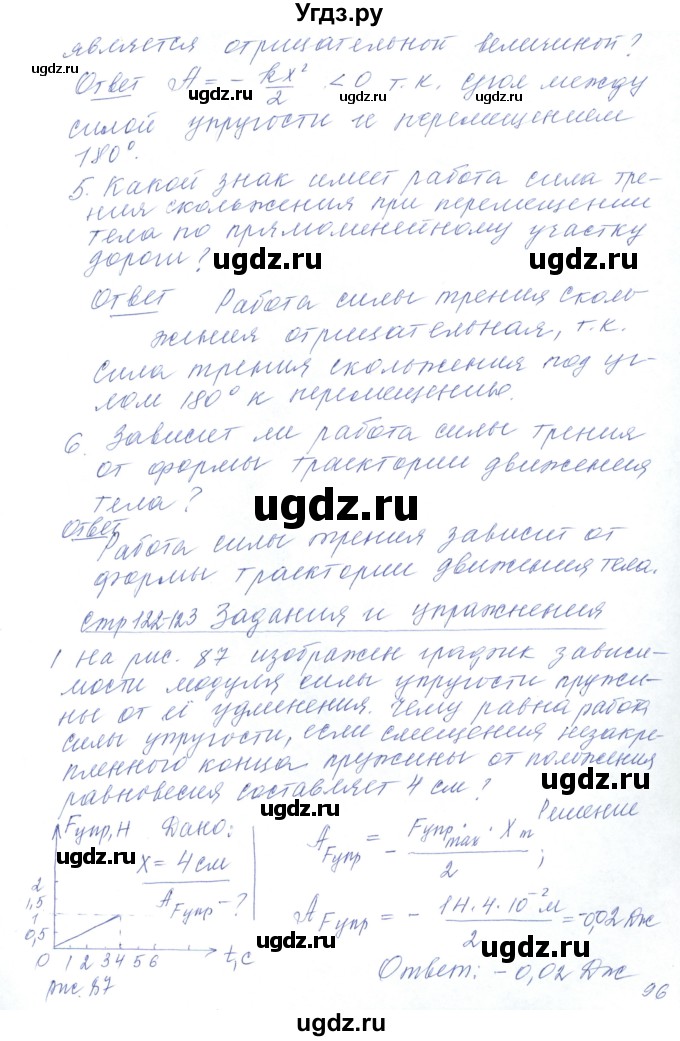 Угдз.ру
является отрицательной величиной?
Ответ A = - kx²/2 < 0 т.к. угол между
силой упругости и перемещением
180°.
5. Какой знак имеет работа сила тре-
ния скольжения при перемещении
тела по прямолинейному участку
дороги?
Ответ Работа силы трения сколь-
жения отрицательная, т.к.
сила трения скольжения под уг-
лом 180° к перемещению.
6. Зависит ли работа силы трения
от формы траектории движения
тела?
Ответ
Работа силы трения зависит от
формы траектории движения тела.
стр 122-123 Задания и упражнения
1 На рис. 87 изображен график зависи-
мости модуля силы упругости пружи-
ны от её удлинения. Чему равна работа
силы упругости, если смещения незакре-
пленного конца пружины от положения
равновесия составляет 4 см?
Решение
Fупр, Н
2
1,5
1
0,5
0 1 2 3 4 5 6 t, с
рис. 87
Дано:
x = 4 см
AFупр - ?
AFупр = - Fупр.max · xm / 2 ;
AFупр = - 1Н·4·10⁻²м / 2 = -0,02 Дж
Ответ: - 0,02 Дж
96
ugdz.ru
ugdz.ru
ugdz.ru
ugdz.ru
ugdz.ru
ugdz.ru
ugdz.ru
ugdz.ru
ugdz.ru
ugdz.ru
ugdz.ru
ugdz.ru
ugdz.ru
ugdz.ru